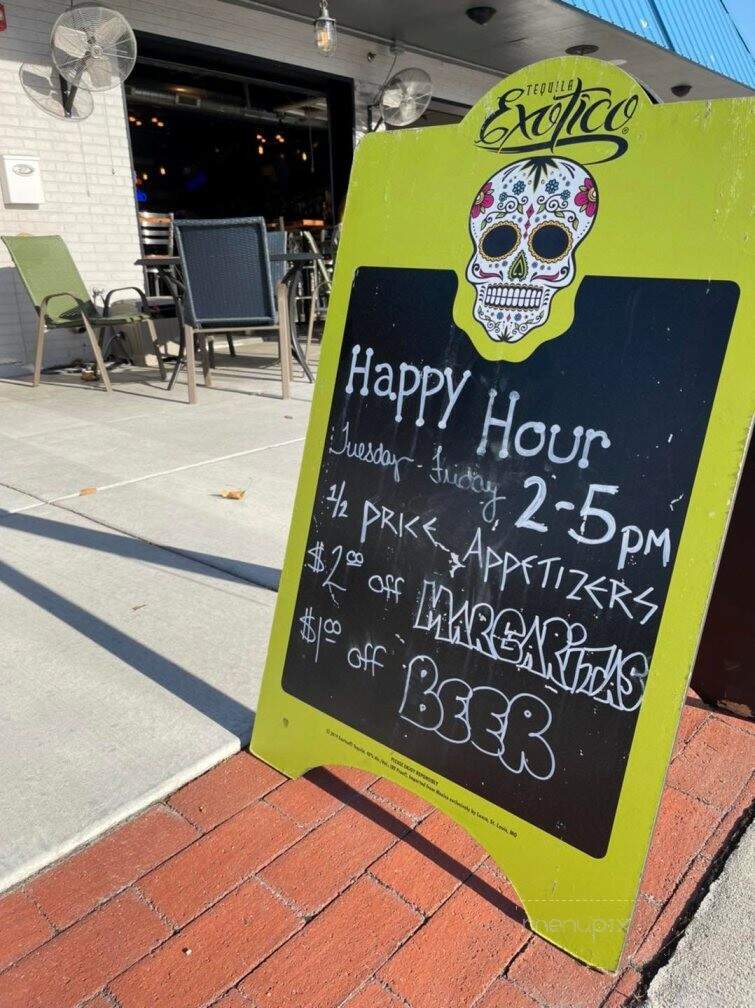 TEQUILA
Exotico®
Happy Hour
Tuesday - Friday 2-5pm
1/2 PRICE APPETIZERS
$2.00 off MARGARITAS
$1.00 off BEER
PLEASE ENJOY RESPONSIBLY
menupix